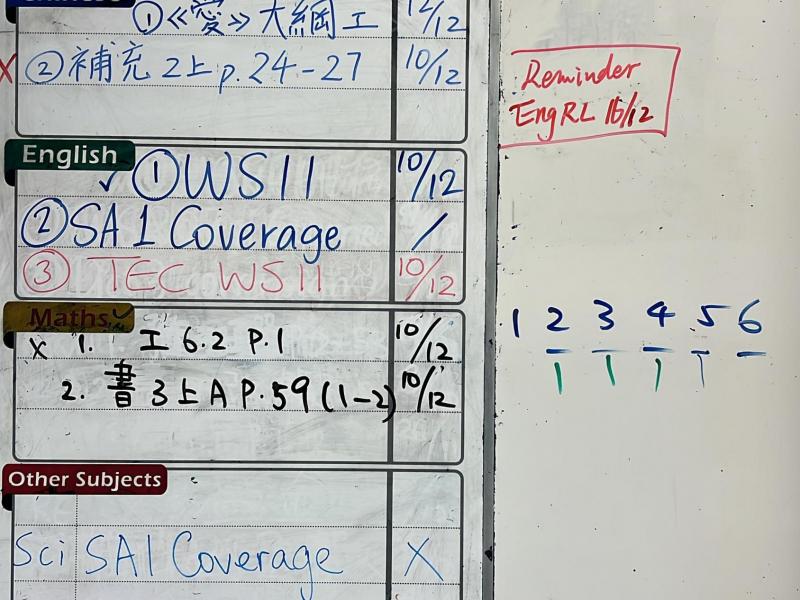 ①《愛》大綱工 12/12
X ②補充 2上 p.24-27 10/12
Reminder
Eng RL 16/12
English
✓ ① WS11 10/12
② SA1 Coverage /
③ TEC WS11 10/12
Maths ✓
x 1. 工 6.2 P.1 10/12
2. 書 3上A P.59 (1-2) 10/12
1 2 3 4 5 6
Other Subjects
Sci SA1 Coverage X